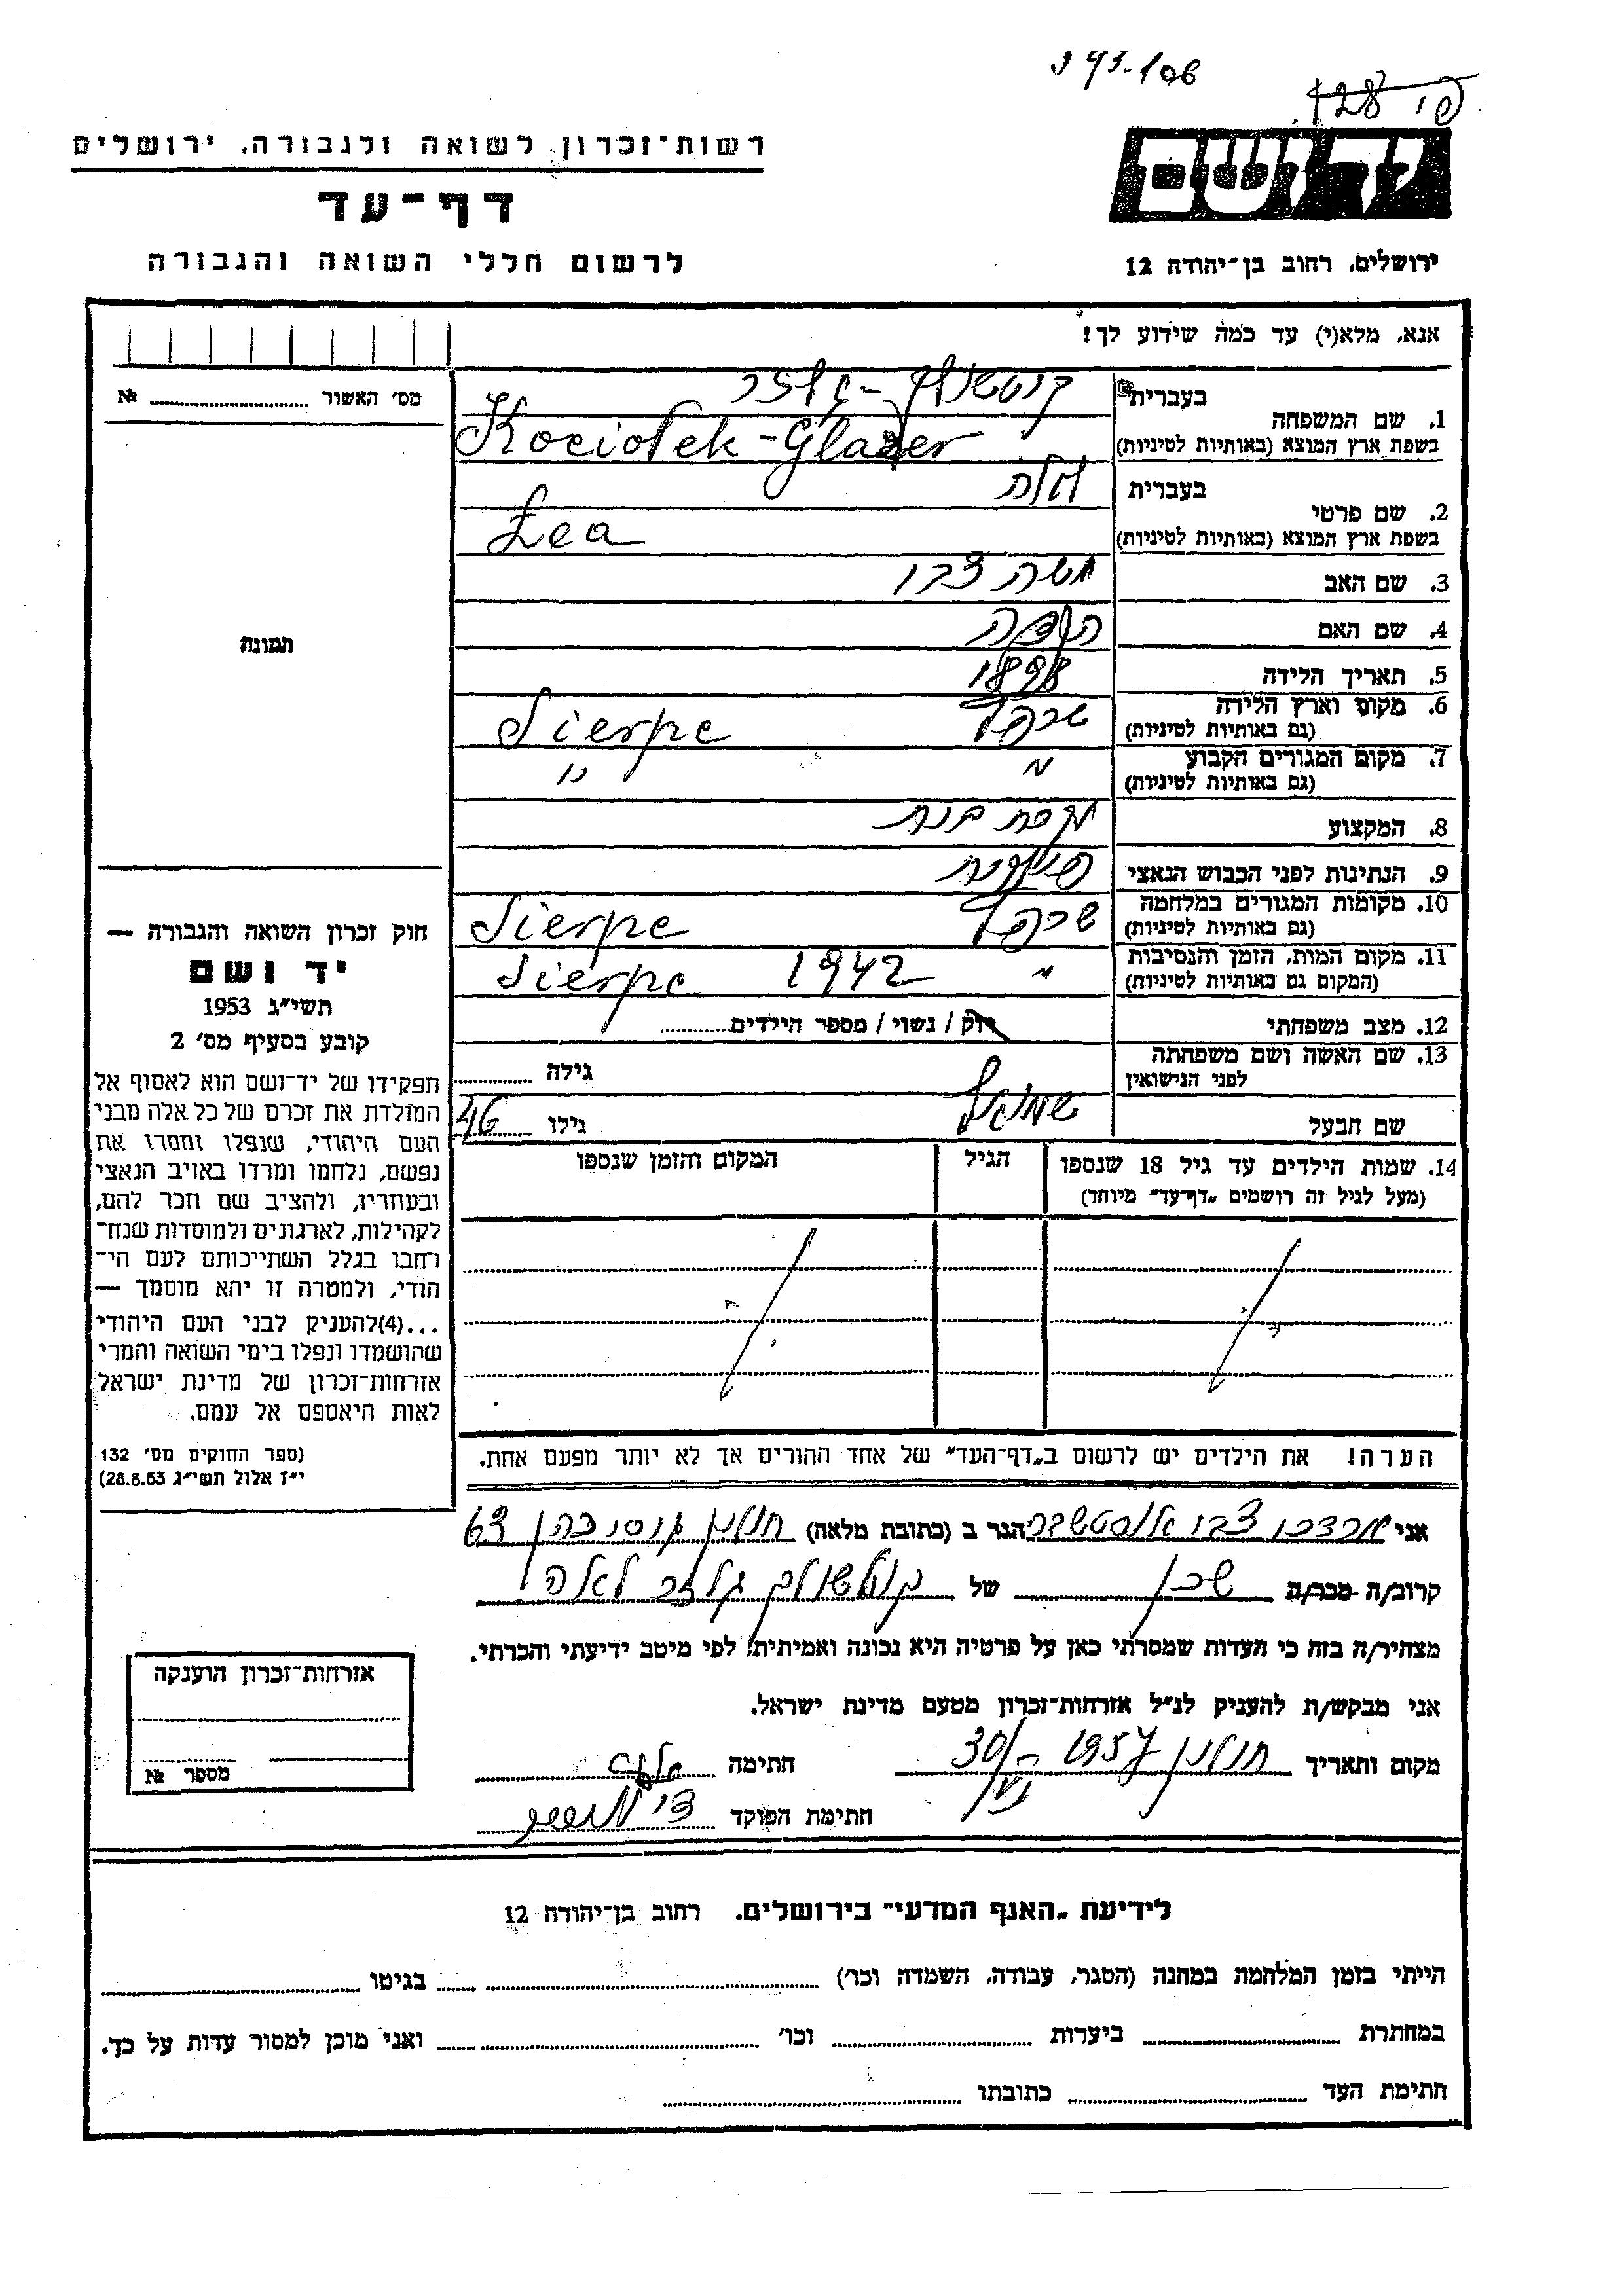 רשות־זכרון לשואה ולגבורה, ירושלים
דף־עד
לרשום חללי השואה והגבורה
יד ושם
ירושלים, רחוב בן־יהודה 12
אנא, מלא(י) עד כמה שידוע לך!
מס׳ האשור № 
1. שם המשפחה
בעברית
בשפת ארץ המוצא (באותיות לטיניות) Kociołek-Glazer
2. שם פרטי
בעברית לאה
בשפת ארץ המוצא (באותיות לטיניות) Lea
3. שם האב משה צבי
4. שם האם
5. תאריך הלידה 1898
6. מקום וארץ הלידה
(גם באותיות לטיניות) שרפץ Sierpc
7. מקום המגורים הקבוע
(גם באותיות לטיניות) " "
8. המקצוע עקרת בית
9. הנתינות לפני הכבוש הנאצי פולנית
10. מקומות המגורים במלחמה
(גם באותיות לטיניות) שרפץ Sierpc
11. מקום המות, הזמן והנסיבות
(המקום גם באותיות לטיניות) " 1942 Sierpc
12. מצב משפחתי רוק / נשוי / מספר הילדים
13. שם האשה ושם משפחתה
לפני הנישואין גילה
שם הבעל שמואל גילו 46
14. שמות הילדים עד גיל 18 שנספו
(מעל לגיל זה רושמים „דף־עד״ מיוחד)
הגיל
המקום והזמן שנספו
הערה! את הילדים יש לרשום ב„דף־העד״ של אחד ההורים אך לא יותר מפעם אחת.
תמונה
חוק זכרון השואה והגבורה —
יד ושם
תשי״ג 1953
קובע בסעיף מס׳ 2
תפקידו של יד־ושם הוא לאסוף אל
המולדת את זכרם של כל אלה מבני
העם היהודי, שנפלו ומסרו את
נפשם, נלחמו ומרדו באויב הנאצי
ובעוזריו, ולהציב שם וזכר להם,
לקהילות, לארגונים ולמוסדות שנח־
רבו בגלל השתייכותם לעם הי־
הודי, ולמטרה זו יהא מוסמך —
...(4)להעניק לבני העם היהודי
שהושמדו ונפלו בימי השואה והמרי
אזרחות־זכרון של מדינת ישראל
לאות היאספם אל עמם.
(ספר החוקים מס׳ 132
י״ז אלול תשי״ג 28.8.53)
אני מרדכי צבי הגר ב (כתובת מלאה) חולון 63
קרוב/ה מכר/ה שכן של גלזר לאה
מצהיר/ה בזה כי העדות שמסרתי כאן על פרטיה היא נכונה ואמיתית, לפי מיטב ידיעתי והכרתי.
אני מבקש/ת להעניק לנ״ל אזרחות־זכרון מטעם מדינת ישראל.
מקום ותאריך חולון 1957 30/VI חתימה
חתימת הפוקד
אזרחות־זכרון הוענקה
מספר №
לידיעת „האגף המדעי״ בירושלים. רחוב בן־יהודה 12
הייתי בזמן המלחמה במחנה (הסגר, עבודה, השמדה וכו׳) בגיטו
במחתרת ביערות וכו׳ ואני מוכן למסור עדות על כך.
חתימת העד כתובתו